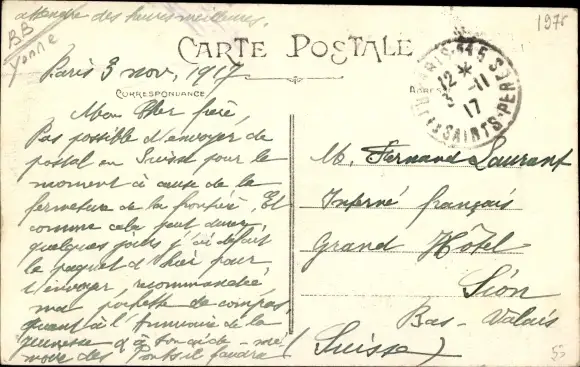 attendre des heures meilleures.
BB
Yonne
1976
CARTE POSTALE
Paris 3 nov, 1917
CORRESPONDANCE
Mon Cher frère,
Pas possible d'envoyer de
postal en Suisse pour le
moment à cause de la
fermeture de la frontière. Et
comme cela peut durer
quelques jours j'ai défait
le paquet d'hier pour
t'envoyer, recommandée,
ma pochette de compas,
quant à l'Annuaire de la
jeunesse et à ton aide-mé-
moire des Ponts il faudra
PARIS
12
3 -11
17
R. DES SAINTS-PERES
M. Fernand Laurant
Interné français
Grand Hôtel
Sion
Bas-Valais
(Suisse)